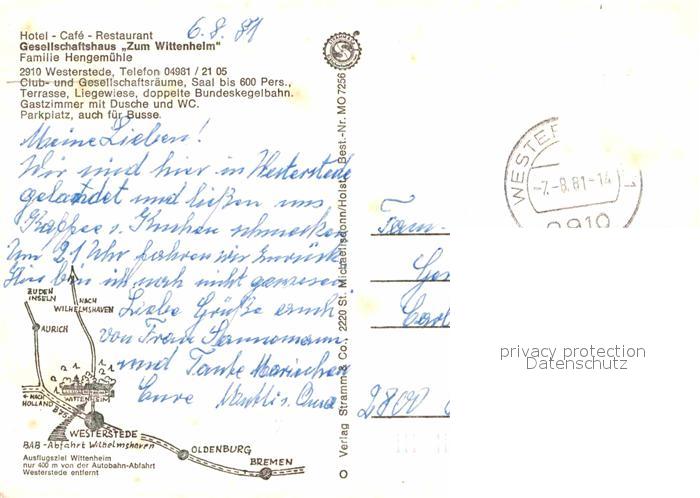 Hotel - Café - Restaurant
6.8.81
Gesellschaftshaus „Zum Wittenheim"
Familie Hengemühle
2910 Westerstede, Telefon 04981 / 21 05
Club- und Gesellschaftsräume, Saal bis 600 Pers.,
Terrasse, Liegewiese, doppelte Bundeskegelbahn.
Gastzimmer mit Dusche und WC.
Parkplatz, auch für Busse.
Meine Lieben!
Wir sind hier in Westerstede
gelandet und ließen uns
Kaffee u. Kuchen schmecken
Um 21 Uhr fahren wir zurück
Hier bin ich noch nicht gewesen
Liebe Grüße auch
von Frau
und Tante Mariechen
Eure
ZU DEN
INSELN
NACH
WILHELMSHAVEN
AURICH
← NACH
HOLLAND
B75
WITTENHEIM
WESTERSTEDE
BAB-Abfahrt Wilhelmshaven
OLDENBURG
BREMEN
Ausflugsziel Wittenheim
nur 400 m von der Autobahn-Abfahrt
Westerstede entfernt
Verlag Stramm & Co., 2220 St. Michaelisdonn/Holst. Best.-Nr. MO 7256
WESTER
-7.-8.81-14
1
2910
Fam.
2800
privacy protection
Datenschutz